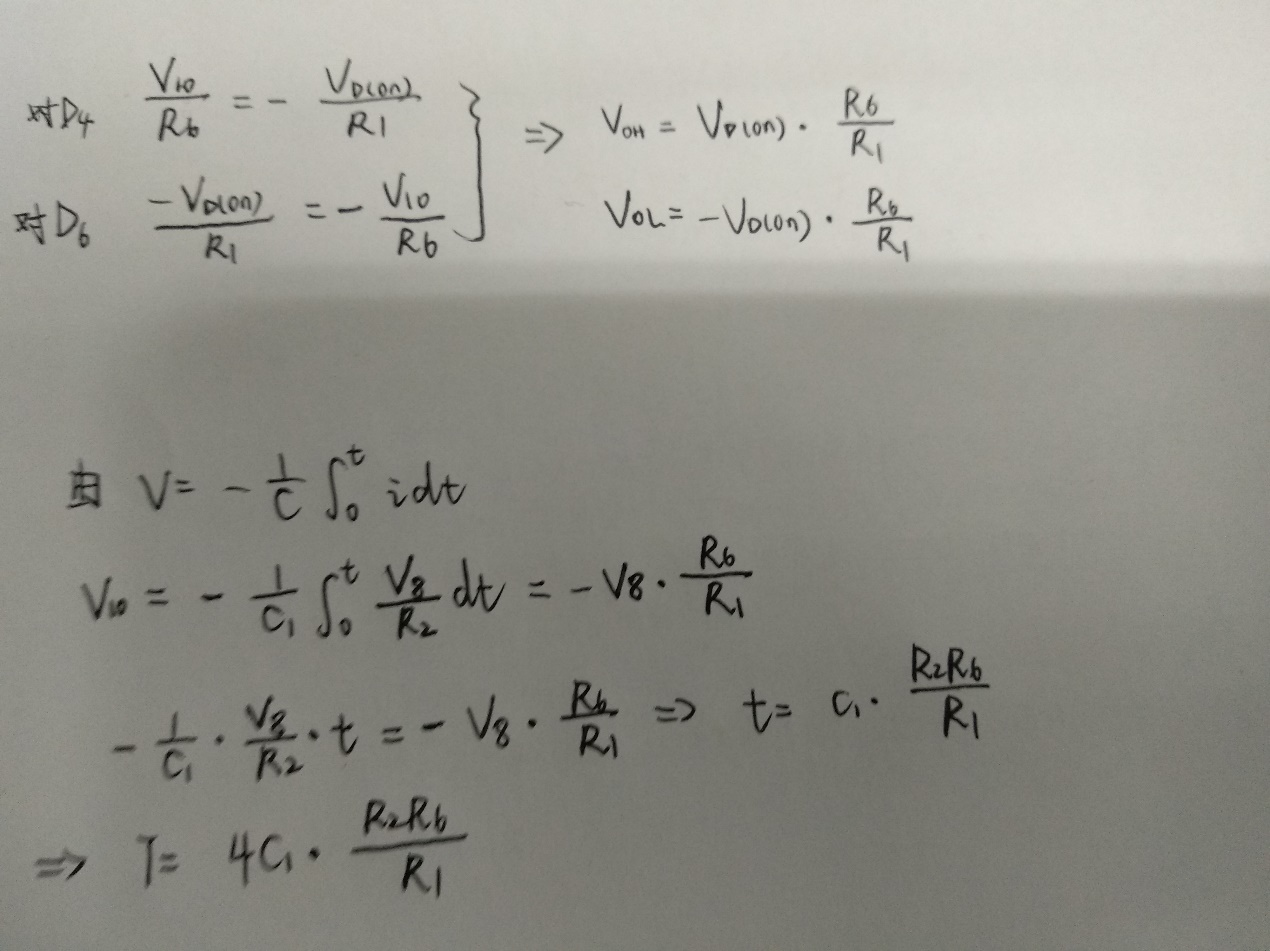 对D₄ V₁₀/R₆ = - V_D(on)/R₁ } ⇒ V_OH = V_D(on) · R₆/R₁
对D₆ -V_D(on)/R₁ = - V₁₀/R₆ V_OL = -V_D(on) · R₆/R₁
由 V = - 1/C ∫₀ᵗ idt
V₁₀ = - 1/C₁ ∫₀ᵗ V₈/R₂ dt = - V8 · R₆/R₁
- 1/C₁ · V₈/R₂ · t = - V₈ · R₆/R₁ ⇒ t = C₁ · R₂R₆/R₁
⇒ T = 4C₁ · R₂R₆/R₁